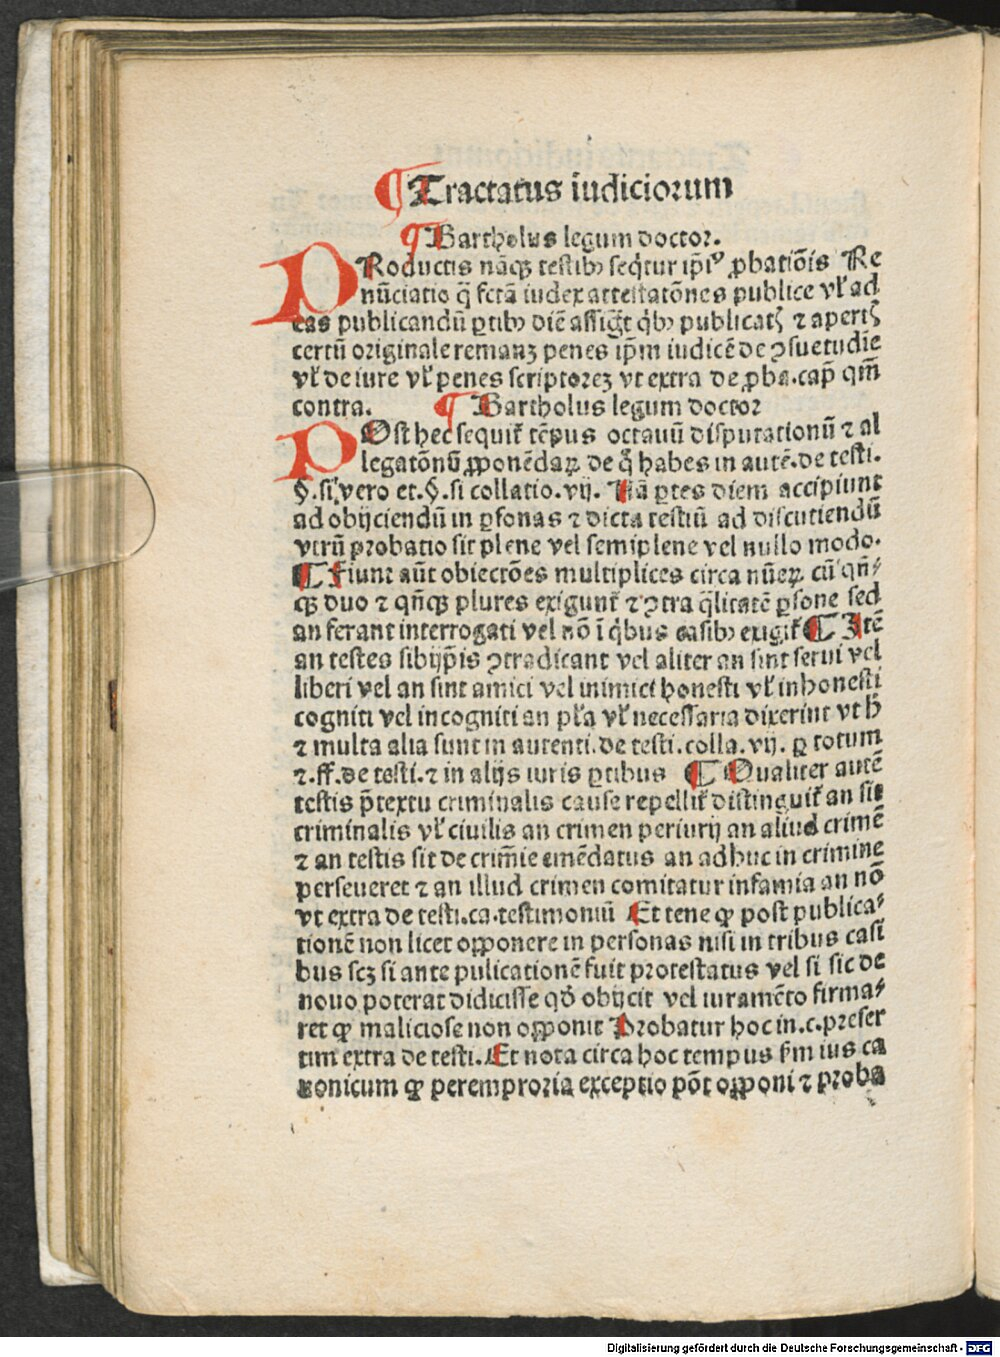 ¶ Tractatus iudiciorum
¶ Bartholus legum doctor.
PRoductis nāqꝫ testibꝰ seq̄tur ip̄iꝰ ꝓbatiōis Re
nūciatio q̄ fctā iudex attestatōnes publice vl̓ ad
eas publicandū ꝑtibꝰ diē assiḡt q̄bꝰ publicatꝭ ⁊ apertꝭ
certū originale remanꝫ penes ip̄m iudicē de ꝯsuetudīe
vl̓ de iure vl̓ penes scriptoreꝫ vt extra de ꝓba.cap̄ qm̄
contra. ¶ Bartholus legum doctor
POst hec sequit᷑ tēpus octauū disputationū ⁊ al
legatōnū ꝓponēdaꝝ de q̄ habes in autē.de testi.
§.si vero et.§.si collatio.vij. Nā ꝑtes diem accipiunt
ad obijciendū in ꝑsonas ⁊ dicta testiū ad discutiendū
vtrū probatio sit plene vel semiplene vel nullo modo.
¶ Fiunt aūt obiectōes multiplices circa nūeꝝ cū qn̄⸗
qꝫ duo ⁊ qn̄qꝫ plures exigunt᷑ ⁊ ꝯtra q̄litatē ꝑsone sed
an ferant interrogati vel nō ī q̄bus casibꝰ exigit᷑ ¶ Itē
an testes sibijp̄is ꝯtradicant vel aliter an sint serui vel
liberi vel an sint amici vel inimici honesti vl̓ inhonesti
cogniti vel incogniti an pl̓a vl̓ necessaria dixerint vt h̄
⁊ multa alia sunt in autenti.de testi.colla.vij. ꝑ totum
⁊.ff.de testi.⁊ in alijs iuris ꝑtibus ¶ Qualiter autē
testis p̄textu criminalis cause repellit᷑ distinguit᷑ an sit
criminalis vl̓ ciuilis an crimen periurij an aliud crimē
⁊ an testis sit de crim̄ie emēdatus an adhuc in crimine
perseueret ⁊ an illud crimen comitatur infamia an nō
vt extra de testi.ca.testimoniū Et tene qꝙ post publica⸗
tionē non licet oꝓponere in personas nisi in tribus casi
bus scꝫ si ante pulicationē fuit protestatus vel si sic de
nouo poterat didicisse qđ obijcit vel iuramēto firma⸗
ret ꝙ maliciose non oꝓponit Probatur hoc in.c.preser
tim extra de testi. Et nota circa hoc tempus ẜm ius ca
nonicum ꝙ peremproria exceptio pōt oꝓponi ⁊ proba
Digitalisierung gefördert durch die Deutsche Forschungsgemeinschaft - DFG